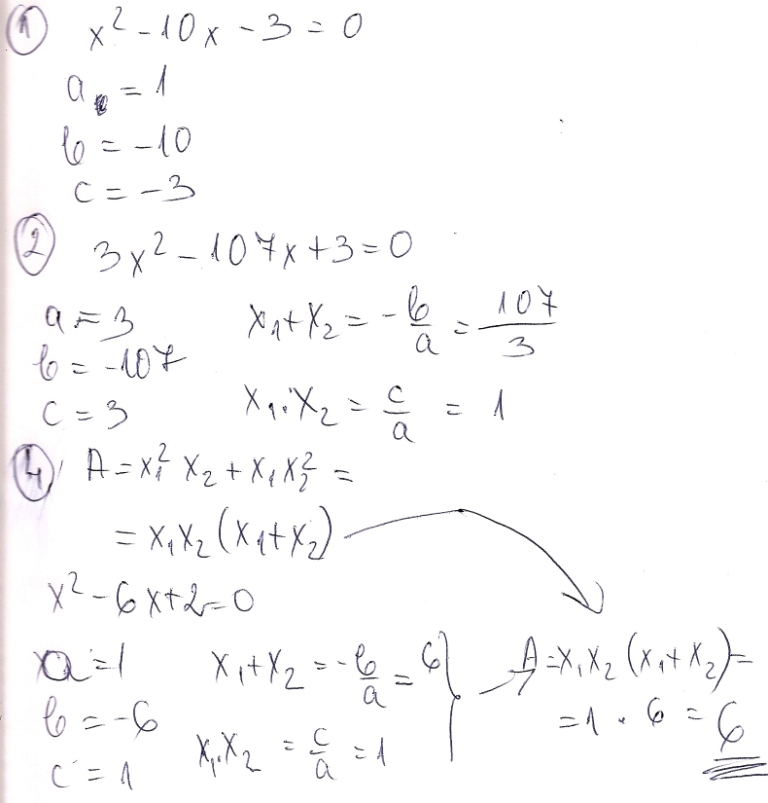 ① x² - 10x - 3 = 0
a = 1
b = -10
c = -3
② 3x² - 107x + 3 = 0
a = 3
x₁ + x₂ = -b/a = 107/3
b = -107
c = 3
x₁ . x₂ = c/a = 1
④ A = x₁² x₂ + x₁ x₂² =
= x₁ x₂ (x₁ + x₂)
x² - 6x + 2 = 0
a = 1
x₁ + x₂ = -b/a = 6
A = x₁ x₂ (x₁ + x₂) =
b = -6
= 1 . 6 = 6
x₁ . x₂ = c/a = 1
c = 1